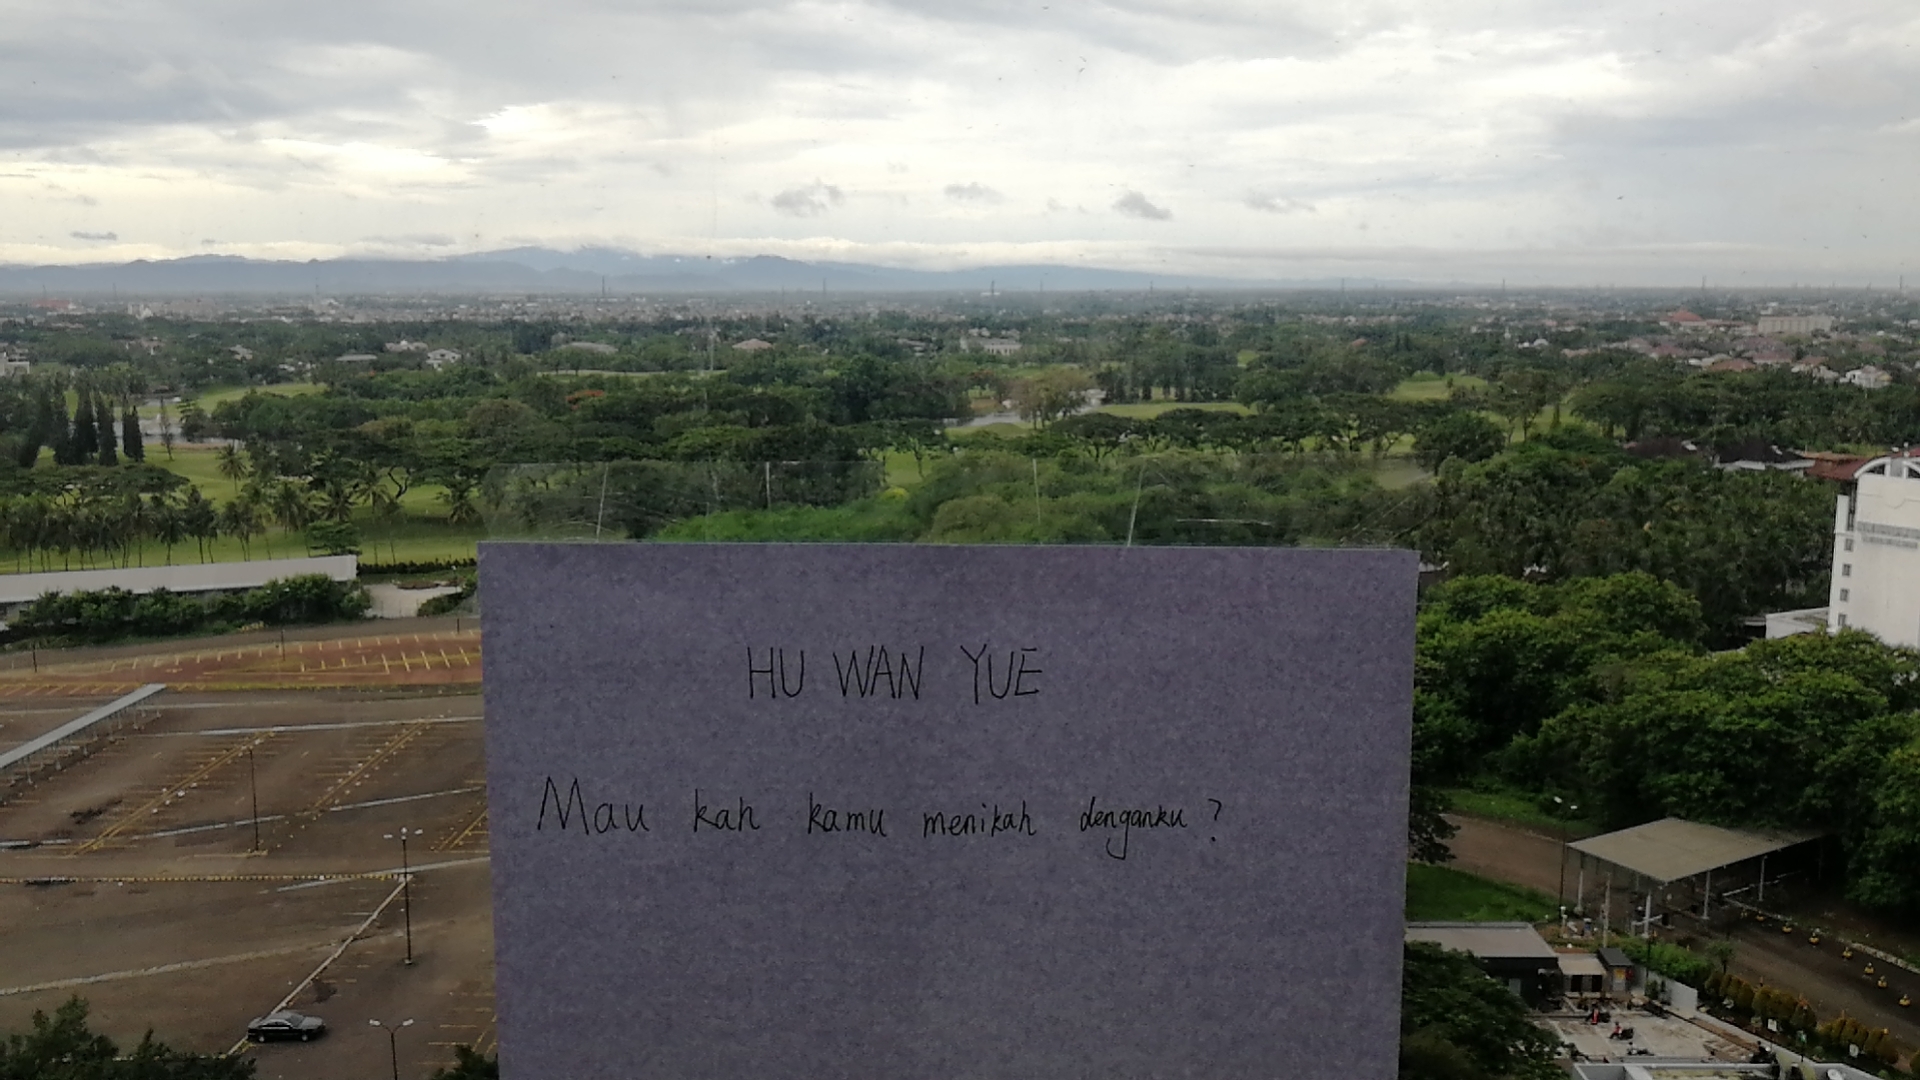 HU WAN YUE
Mau kah kamu menikah denganku ?